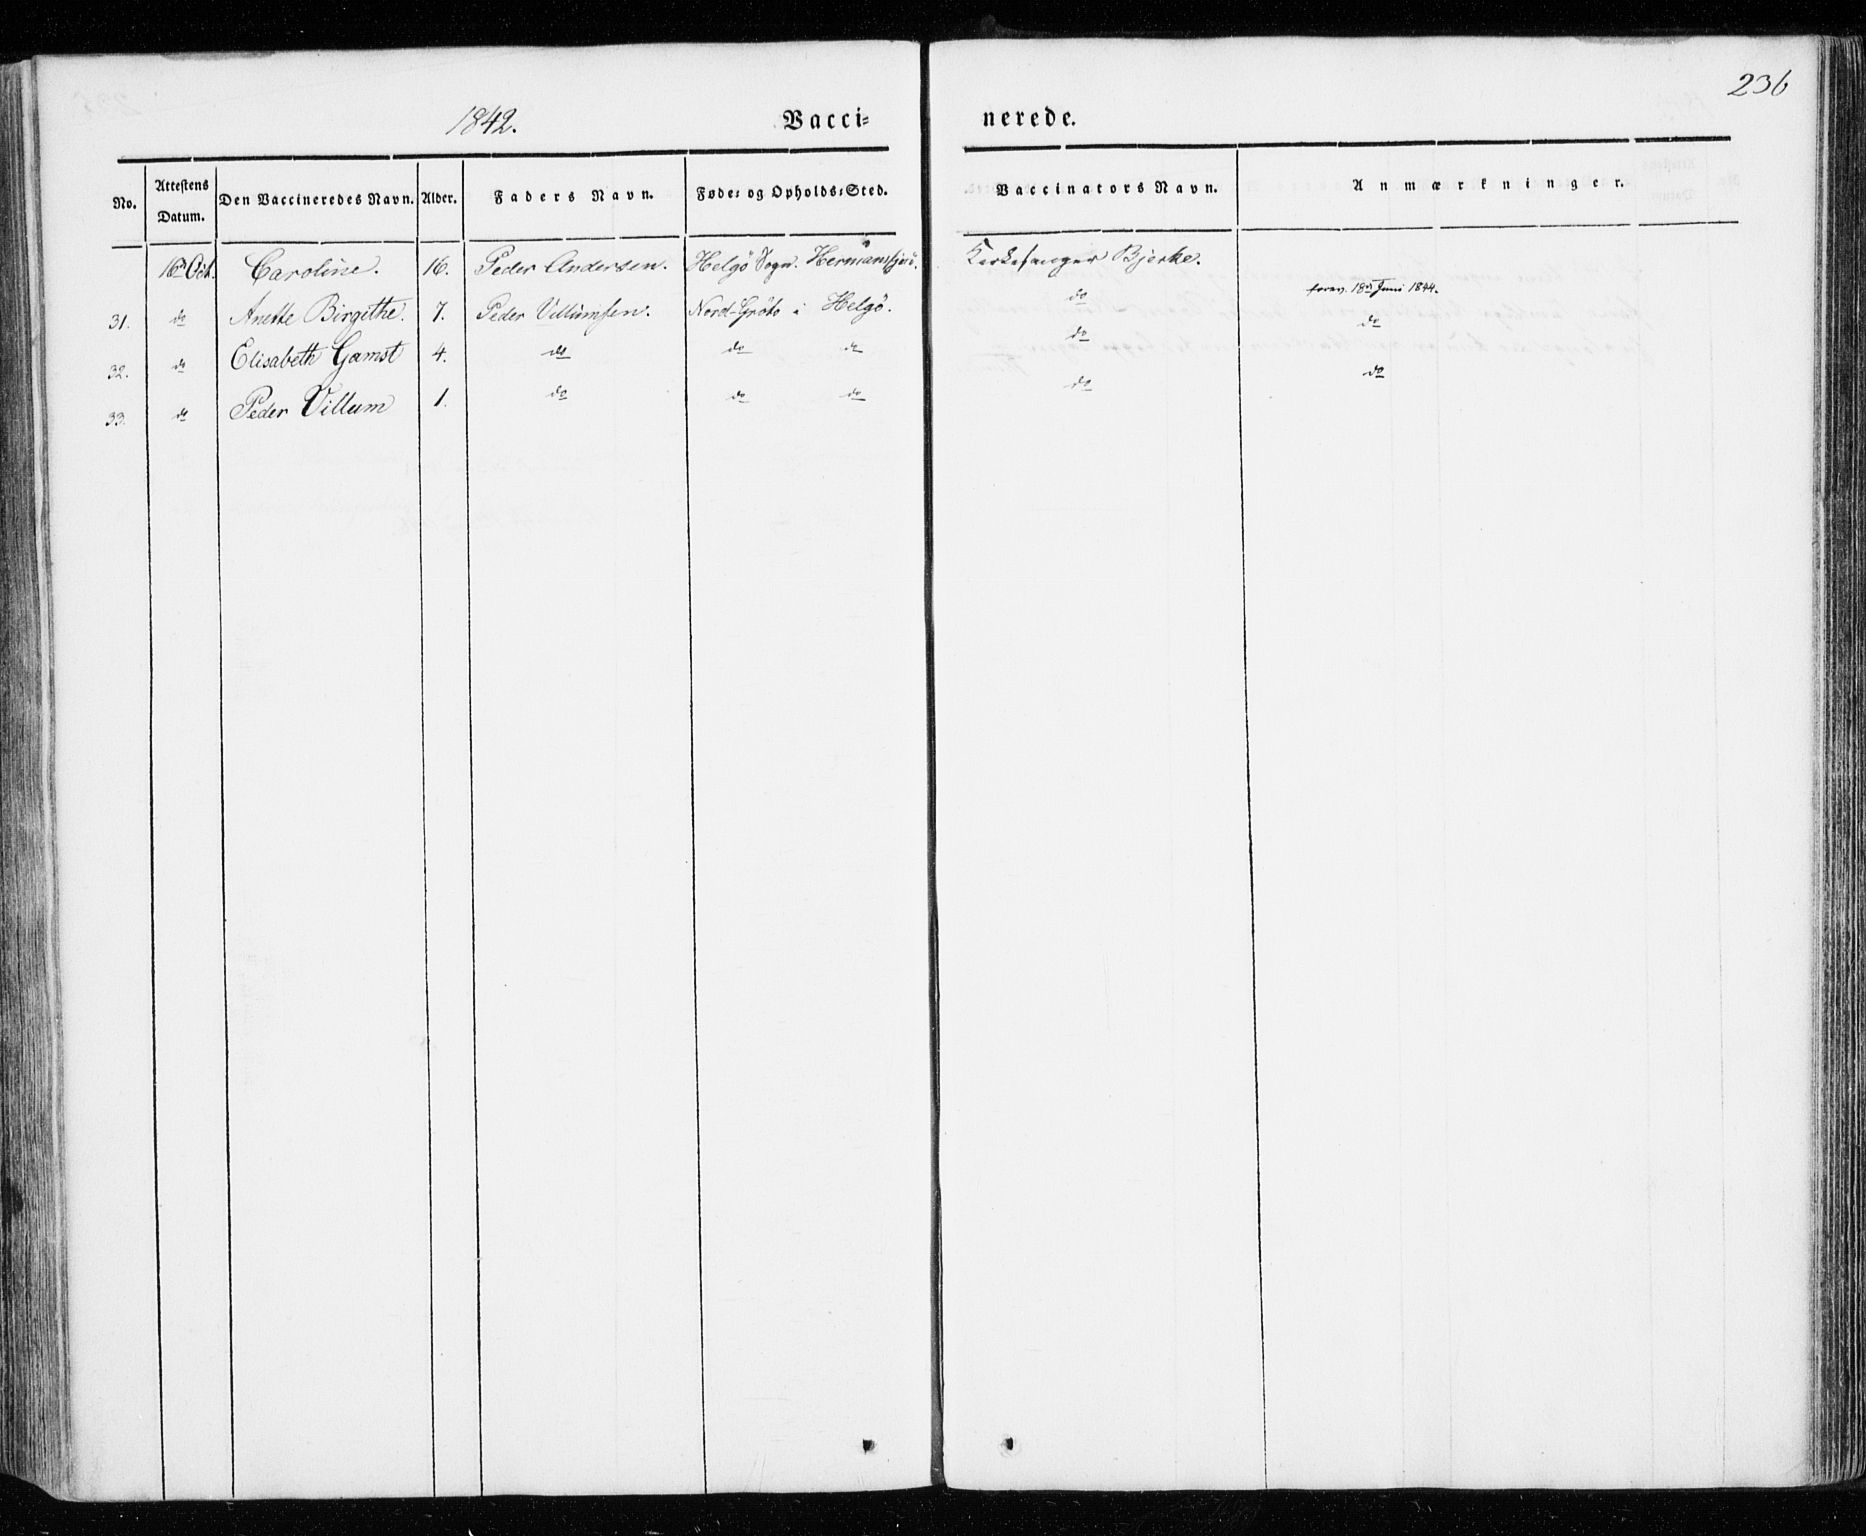 236
1842. Vacci= nerede.
No. Attestens Datum. Den Vaccineredes Navn. Alder. Faders Navn. Føde= og Opholds=Sted. Vaccinators Navn. Anmærkninger.
16 Oct. Caroline. 16. Peder Andersen. Helgö Sogn. Kirkesanger Bjerke.
31. do Anette Birgithe. 7. Peder Villumsen. Nord-Gröto i Helgö. do 18 Juni 1844.
32. do Elisabeth Gamst 4. do do do do do
33. do Peder Villum 1. do do do do do